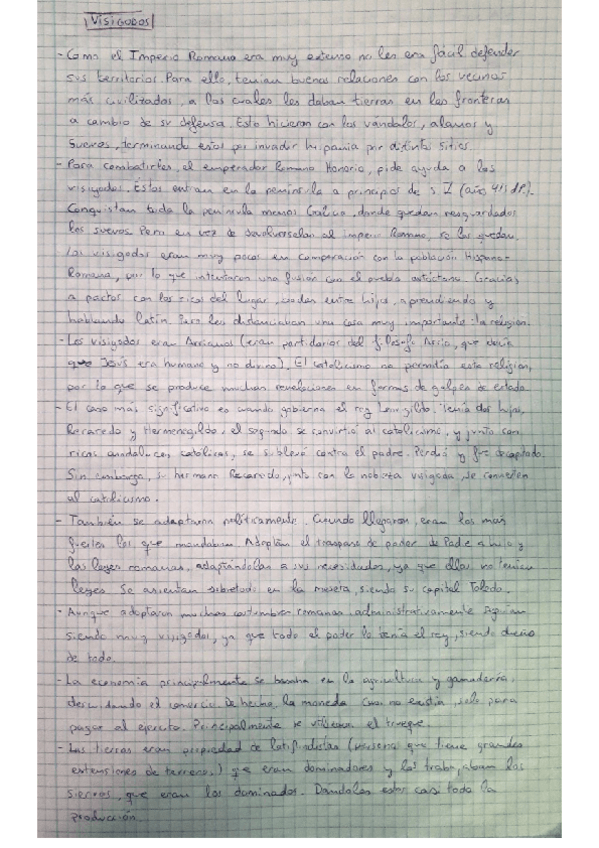 VISIGODOS
- Como el Imperio Romano era muy extenso no les era fácil defender
sus territorios. Para ello, tenían buenas relaciones con los vecinos
más civilizados, a los cuales les daban tierras en las fronteras
a cambio de su defensa. Esto hicieron con los vándalos, alanos y
suevos, terminando estos por invadir hispania por distintos sitios.
- Para combatirles, el emperador Romano Honorio, pide ayuda a los
visigodos. Estos entran en la península a principios de s I (año 411 dP.).
Conquistan toda la península menos Galicia, donde quedan resguardados
los suevos. Pero en vez de devolverselas al imperio Romano, se las quedan.
Los visigodos eran muy pocos en comparación con la población Hispano-
Romana, por lo que intentaron una fusión con el pueblo autóctono. Gracias
a pactos con los ricos del lugar, entre hijos, aprendiendo y
hablando latín. Pero les distanciaban una cosa muy importante: la religión.
- Los visigodos eran Arrianos (eran partidarios del filósofo Arrio, que decía
que Jesús era humano y no divino). El catolicismo no permitía esta religión,
por lo que se produce muchas revoluciones en formas de golpes de estado.
- El caso más significativo es cuando gobierna el rey Leovigildo. Tenía dos hijos,
Recaredo y Hermenegildo, el segundo se convirtió al catolicismo, y junto con
ricos andaluces, católicos, se sublevó contra el padre. Perdió y fue decapitado.
Sin embargo, su hermano Recaredo, junto con la nobleza visigoda, se convierten
al catolicismo.
- También se adaptaron políticamente. Cuando llegaron, eran los más
fuertes los que mandaban. Adoptan el traspaso de poder de Padre a hijo y
las leyes romanas, adaptándolas a sus necesidades, ya que ellos no tenían
leyes. Se asientan sobretodo en la meseta, siendo su capital Toledo.
- Aunque adoptaron muchas costumbres romanas, administrativamente seguían
siendo muy visigodos, ya que todo el poder lo tenía el rey, siendo dueño
de todo.
- La economía principalmente se basaba en la agricultura y ganadería,
descuidando el comercio. De hecho, la moneda casi no existía, solo para
pagar al ejercito. Principalmente se utilizaba el trueque.
- Las tierras eran propiedad de latifundistas (persona que tiene grandes
extensiones de terreno,) que eran dominadores y las trabajaban los
siervos, que eran los dominados. Dandoles estos casi toda la
producción.